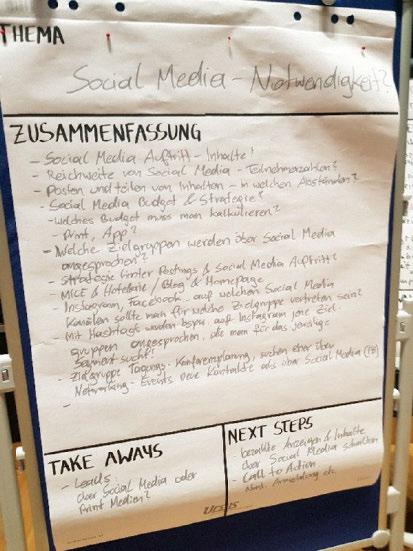 THEMA
Social Media - Notwendigkeit?
ZUSAMMENFASSUNG
- Social Media Auftritt - Inhalte!
- Reichweite von Social Media - Teilnehmerzahlen?
- Posten und teilen von Inhalten - in welchen Abständen?
- Social Media Budget & Strategie?
- welches Budget muss man kalkulieren?
- Print, App?
- Welche Zielgruppen werden über Social Media
angesprochen?
- Strategie hinter Postings & Social Media Auftritt?
- MICE & Hotellerie / Blog & Homepage
- Instagram, Facebook - auf welchen Social Media
Kanälen sollte man für welche Zielgruppe vertreten sein?
- Mit Hashtags wurden bspw. auf Instagram jene Ziel
gruppen angesprochen, die man für das jeweilige
Segment sucht!
- Zielgruppe Tagungs- Konferenzplanung, suchen eher über
Networking - Events neue Kontakte als über Social Media (FB)
-
TAKE AWAYS
- Leads
über Social Media oder
Print Medien?
NEXT STEPS
bezahlte Anzeigen & Inhalte
über Social Media schalten
- Call to Action
Anmeldung etc.